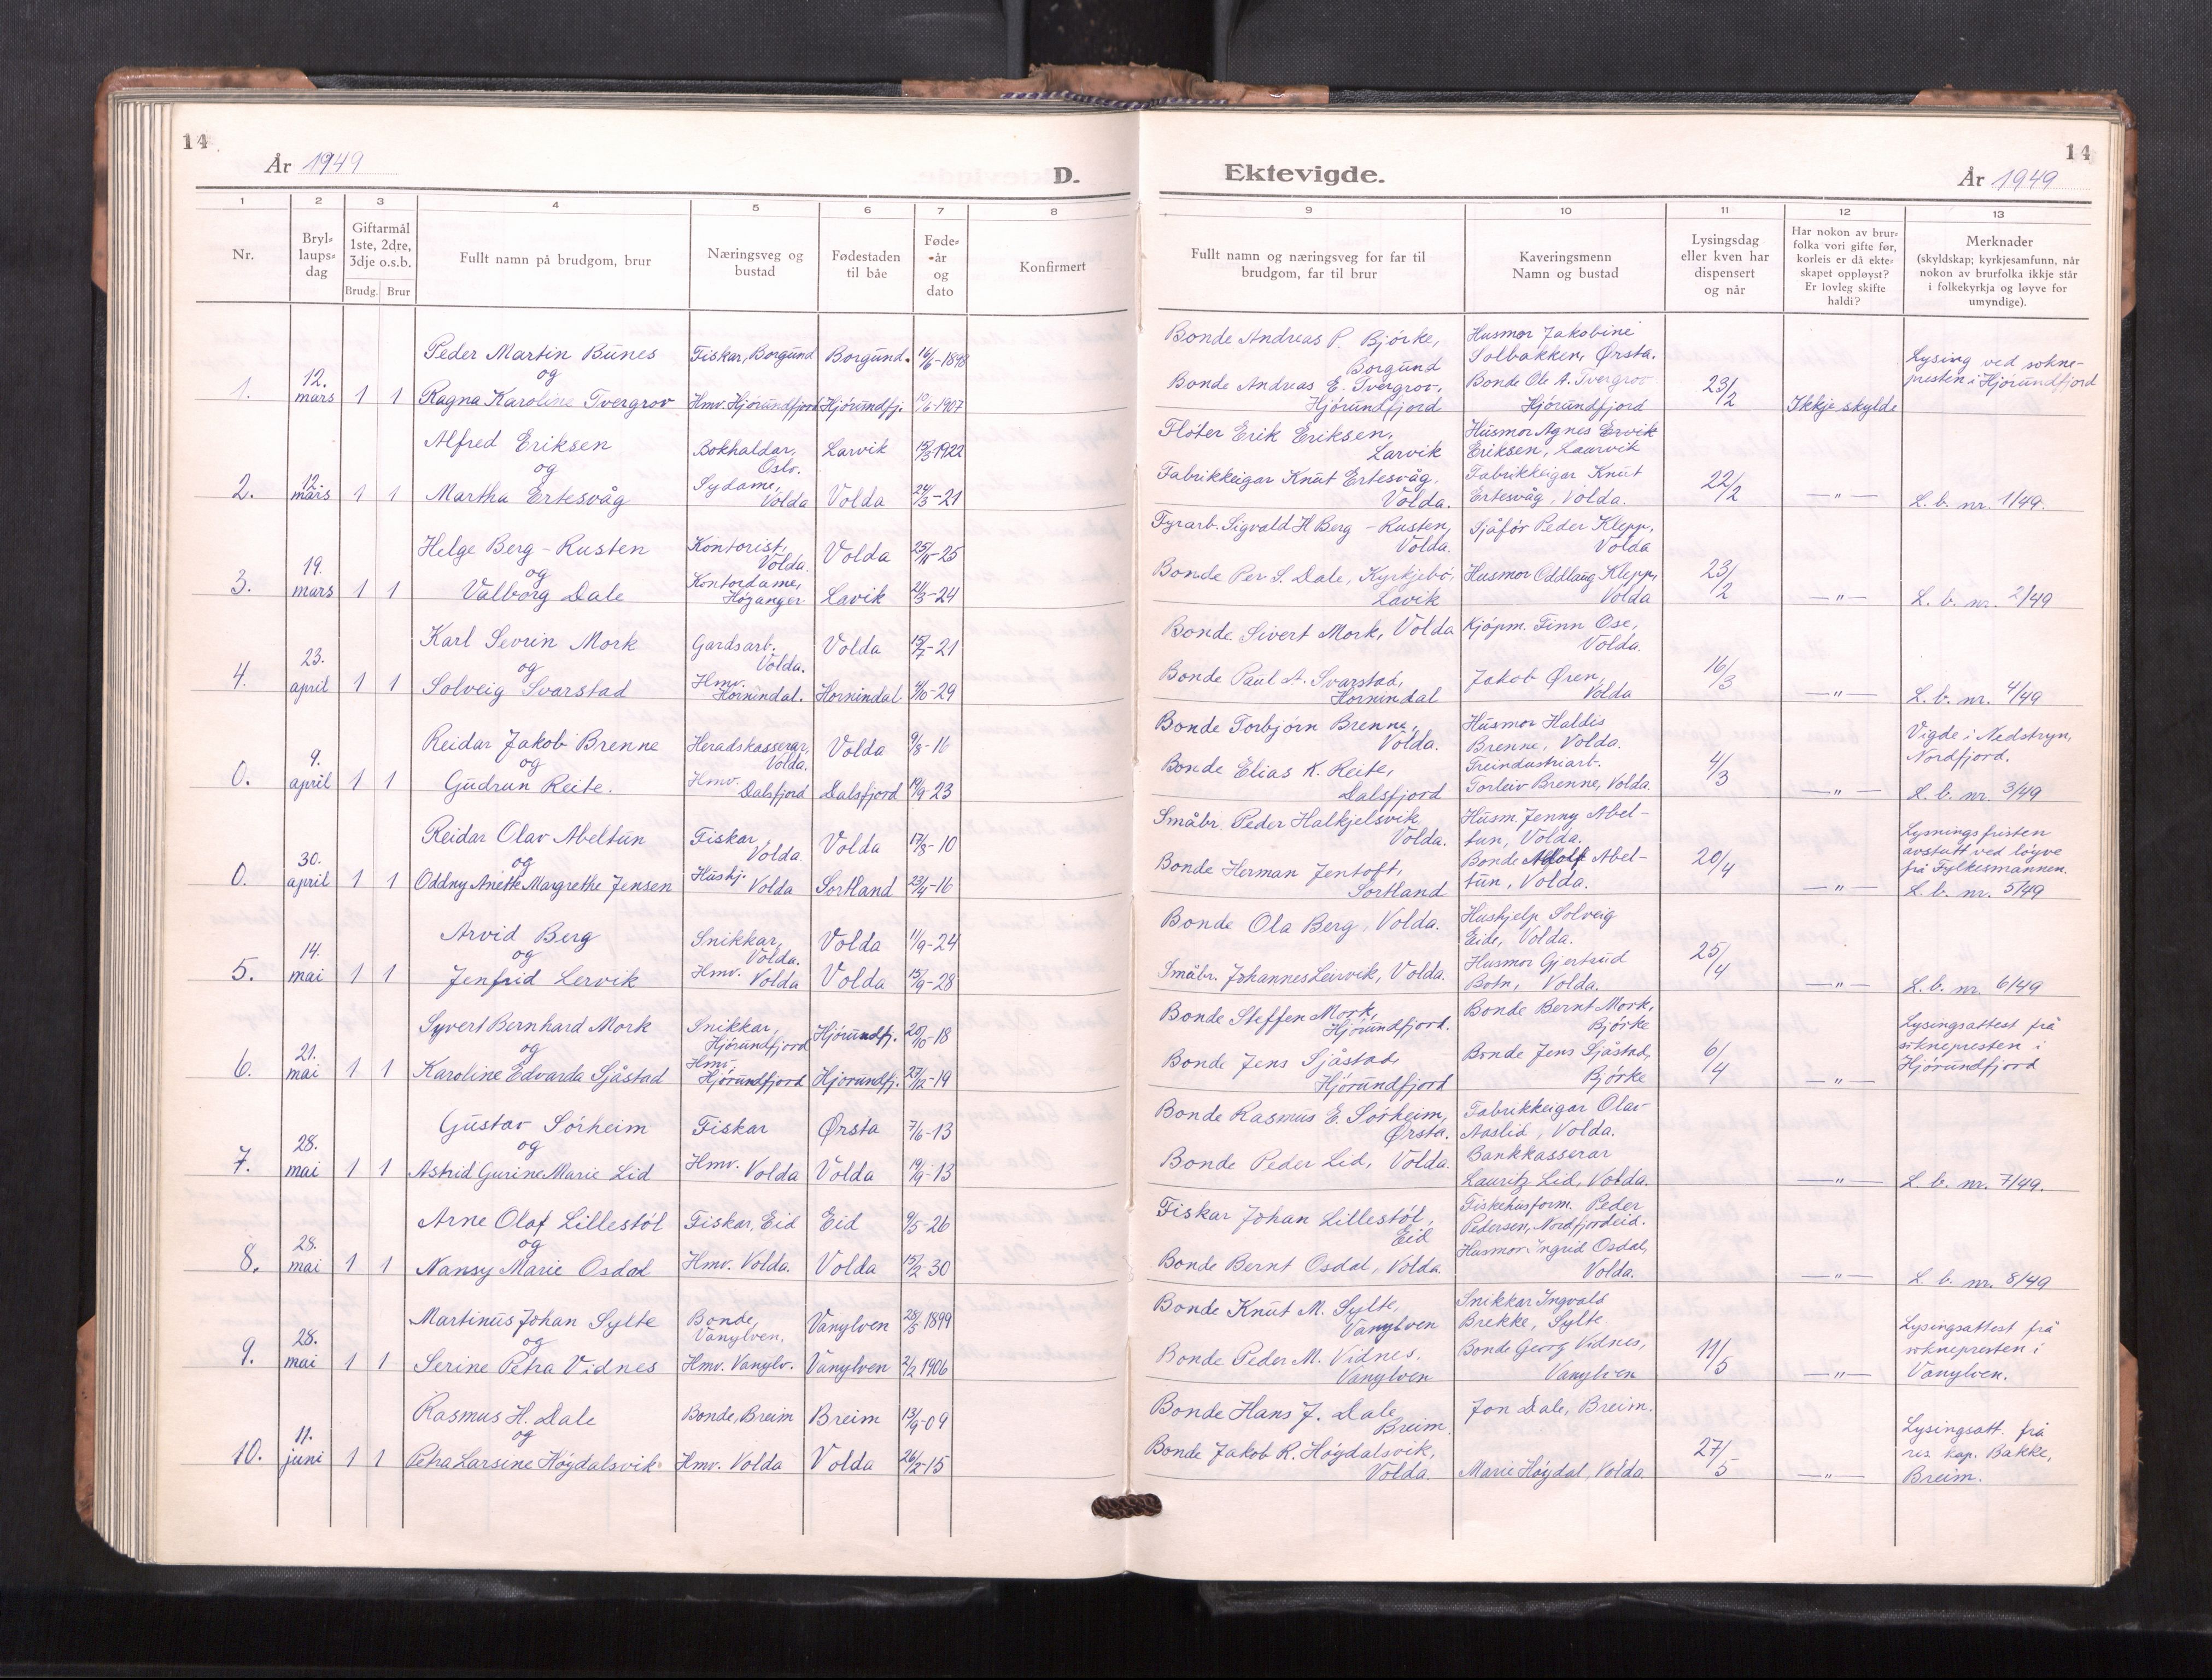 14
År 1949
D.
Ektevigde.
År 1949
14
1 2 3 4 5 6 7 8 9 10 11 12 13
Nr.
Bryl-
laups-
dag
Giftarmål
1ste, 2dre,
3dje o.s.b.
Brudg. Brur
Fullt namn på brudgom, brur
Næringsveg og
bustad
Fødestaden
til båe
Føde-
år
og
dato
Konfirmert
Fullt namn og næringsveg for far til
brudgom, far til brur
Kaveringsmenn
Namn og bustad
Lysingsdag
eller kven har
dispensert
og når
Har nokon av brur-
folka vori gifte før,
korleis er då ekte-
skapet oppløyst?
Er lovleg skifte
haldi?
Merknader
(skyldskap; kyrkjesamfunn, når
nokon av brurfolka ikkje står
i folkekyrkja og løyve for
umyndige).
1. 12. mars 1 1
Peder Martin Bunes
og
Ragna Karoline Tvergrov
Fiskar, Borgund
Hmv. Hjørundfjord
Borgund.
Hjørundfj.
16/6-1898
10/6-1907
Bonde Andreas P. Bjørke,
Borgund
Bonde Andreas E. Tvergrov,
Hjørundfjord
Husmor Jakobine
Solbakken, Ørsta.
Bonde Ole A. Tvergrov
Hjørundfjord
23/2
Ikkje skylde
Lysing ved sokne-
presten i Hjørundfjord
2. 12. mars 1 1
Alfred Eriksen
og
Martha Ertesvåg
Bokhaldar,
Oslo.
Sydame,
Volda
Larvik
Volda
15/3 1922
24/3-21
Fløter Erik Eriksen,
Larvik
Fabrikkeigar Knut Ertesvåg,
Volda.
Husmor Agnes Ervik
Eriksen, Laurvik
Fabrikkeigar Knut
Ertesvåg, Volda.
22/2
-"-
L. b. nr. 1/49.
3. 19. mars 1 1
Helge Berg-Rusten
og
Valborg Dale
Kontorist,
Volda.
Kontordame,
Høyanger
Volda
Lavik
25/11-25
21/3-24
Fyrarb. Sigvald H Berg-Rusten,
Volda.
Bonde Per S. Dale, Kyrkjebø,
Lavik
Sjåfør Peder Klepp,
Volda
Husmor Oddlaug Klepp,
Volda
23/2
-"-
L. b. nr. 2/49
4. 23. april 1 1
Karl Sevrin Mork
og
Solveig Svarstad
Gardsarb.
Volda.
Hmv.
Hornindal.
Volda
Hornindal
15/7-21
4/6-29
Bonde Sivert Mork, Volda
Bonde Paul A. Svarstad,
Hornindal
Kjøpm. Finn Ose,
Volda.
Jakob Øren,
Volda
16/3
-"-
L. b. nr. 4/49
0. 9. april 1 1
Reidar Jakob Brenne
og
Gudrun Reite.
Heradskasserar,
Volda.
Hmv.
Dalsfjord
Volda
Dalsfjord
9/8-16
19/9-23
Bonde Torbjørn Brenne,
Volda.
Bonde Elias K. Reite,
Dalsfjord
Husmor Haldis
Brenne, Volda.
Treindustriarb.
Torleiv Brenne, Volda.
4/3
-"-
Vigde i Nedstryn,
Nordfjord.
L. b. nr. 3/49
0. 30. april 1 1
Reidar Olav Abeltun
og
Oddny Anette Margrethe Jensen
Fiskar
Volda
Hushj.
Volda
Volda
Sortland
17/8-10
23/4-16
Småbr. Peder Halkjelsvik
Volda.
Bonde Herman Jentoft,
Sortland
Husm. Jenny Abel-
tun, Volda.
Bonde Adolf Abel-
tun, Volda.
20/4
-"-
Lysningsfristen
avstutt ved løyve
frå Fylkesmannen.
L. b. nr. 5/49
5. 14. mai 1 1
Arvid Berg
og
Jenfrid Lervik
Snikkar,
Volda.
Hmv. Volda
Volda
Volda
11/9-24
15/9-28
Bonde Ola Berg, Volda.
Småbr. Johannes Leirvik, Volda.
Hushjelp Solveig
Eide, Volda.
Husmor Gjertrud
Botn, Volda.
25/4
-"-
L. b. nr. 6/49
6. 21. mai 1 1
Syvert Bernhard Mork
og
Karoline Edvarda Sjåstad
Snikkar,
Hjørundfjord
Hmv.
Hjørundfjord
Hjørundfj.
Hjørundfj.
20/10-18
27/12-19
Bonde Steffen Mork,
Hjørundfjord.
Bonde Jens Sjåstad,
Hjørundfjord
Bonde Bernt Mork,
Bjørke
Bonde Jens Sjåstad,
Bjørke
6/4
-"-
Lysingsattest frå
soknepresten i
Hjørundfjord
7. 28. mai 1 1
Gustav Sørheim
og
Astrid Gurine Marie Lid
Fiskar
Hmv. Volda
Ørsta
Volda
7/6-13
19/9-13
Bonde Rasmus E. Sørheim,
Ørsta.
Bonde Peder Lid, Volda.
Fabrikkeigar Olav
Aaslid, Volda.
Bankkasserar
Lauritz Lid, Volda.
-"-
L. b. nr. 7/49.
8. 28. mai 1 1
Arne Olaf Lillestøl
og
Nansy Marie Osdal
Fiskar, Eid
Hmv. Volda.
Eid
Volda
9/5-26
15/2-30
Fiskar Johan Lillestøl,
Eid
Bonde Bernt Osdal, Volda.
Fiskehusform. Peder
Pedersen, Nordfjordeid.
Husmor Ingrid Osdal,
Volda.
-"-
L. b. nr. 8/49
9. 28. mai 1 1
Martinus Johan Sylte
og
Serine Petra Vidnes
Bonde,
Vanylven.
Hmv. Vanylv.
Vanylven
Vanylven
28/5 1899
2/2 1906
Bonde Knut M. Sylte,
Vanylven
Bonde Peder M. Vidnes,
Vanylven
Snikkar Ingvald
Brekke, Sylte
Bonde Georg Vidnes,
Vanylven
11/5
-"-
Lysingsattest frå
soknepresten i
Vanylven.
10. 11. juni 1 1
Rasmus H. Dale
og
Petra Larsine Høydalsvik
Bonde, Breim
Hmv. Volda
Breim
Volda
13/9-09
26/2-15
Bonde Hans J. Dale
Breim.
Bonde Jakob R. Høydalsvik,
Volda.
Jon Dale, Breim.
Marie Høydal, Volda
27/5
-"-
Lysingsatt. frå
res. kap. Bakke,
Breim.